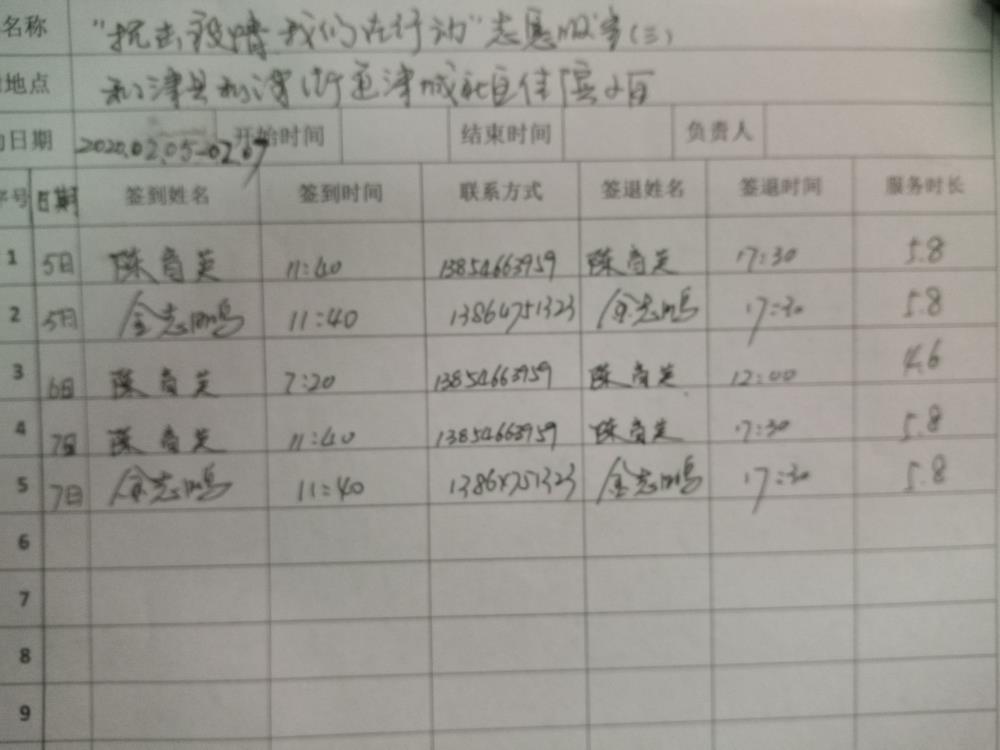 名称 "抗击疫情 我们在行动"志愿服务(三)
地点 利津县利津街道津城社区佳滨小区
日期 2020.02.05-02.07 开始时间 结束时间 负责人
序号 日期 签到姓名 签到时间 联系方式 签退姓名 签退时间 服务时长
1 5日 陈育英 11:40 13854663959 陈育英 17:30 5.8
2 5日 金志鹏 11:40 13864751323 金志鹏 17:30 5.8
3 6日 陈育英 7:20 13854663959 陈育英 12:00 4.6
4 7日 陈育英 11:40 13854663959 陈育英 17:30 5.8
5 7日 金志鹏 11:40 13864751323 金志鹏 17:30 5.8
6
7
8
9